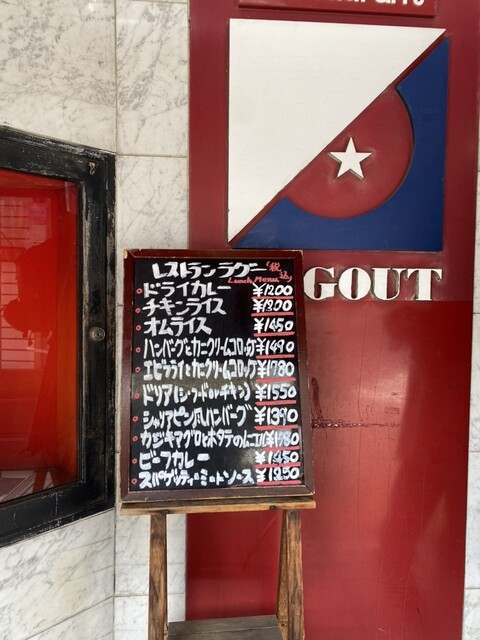 レストランラグー (税込)
Lunch Menu
ドライカレー ¥1200
チキンライス ¥1300
オムライス ¥1450
ハンバーグとカニクリームコロッケ ¥1490
エビフライとカニクリームコロッケ ¥1780
ドリア(シーフードorチキン) ¥1550
シャリアピン風ハンバーグ ¥1390
カジキマグロとホタテのムニエル ¥1980
ビーフカレー ¥1450
スパゲッティーミートソース ¥1250
GOUT